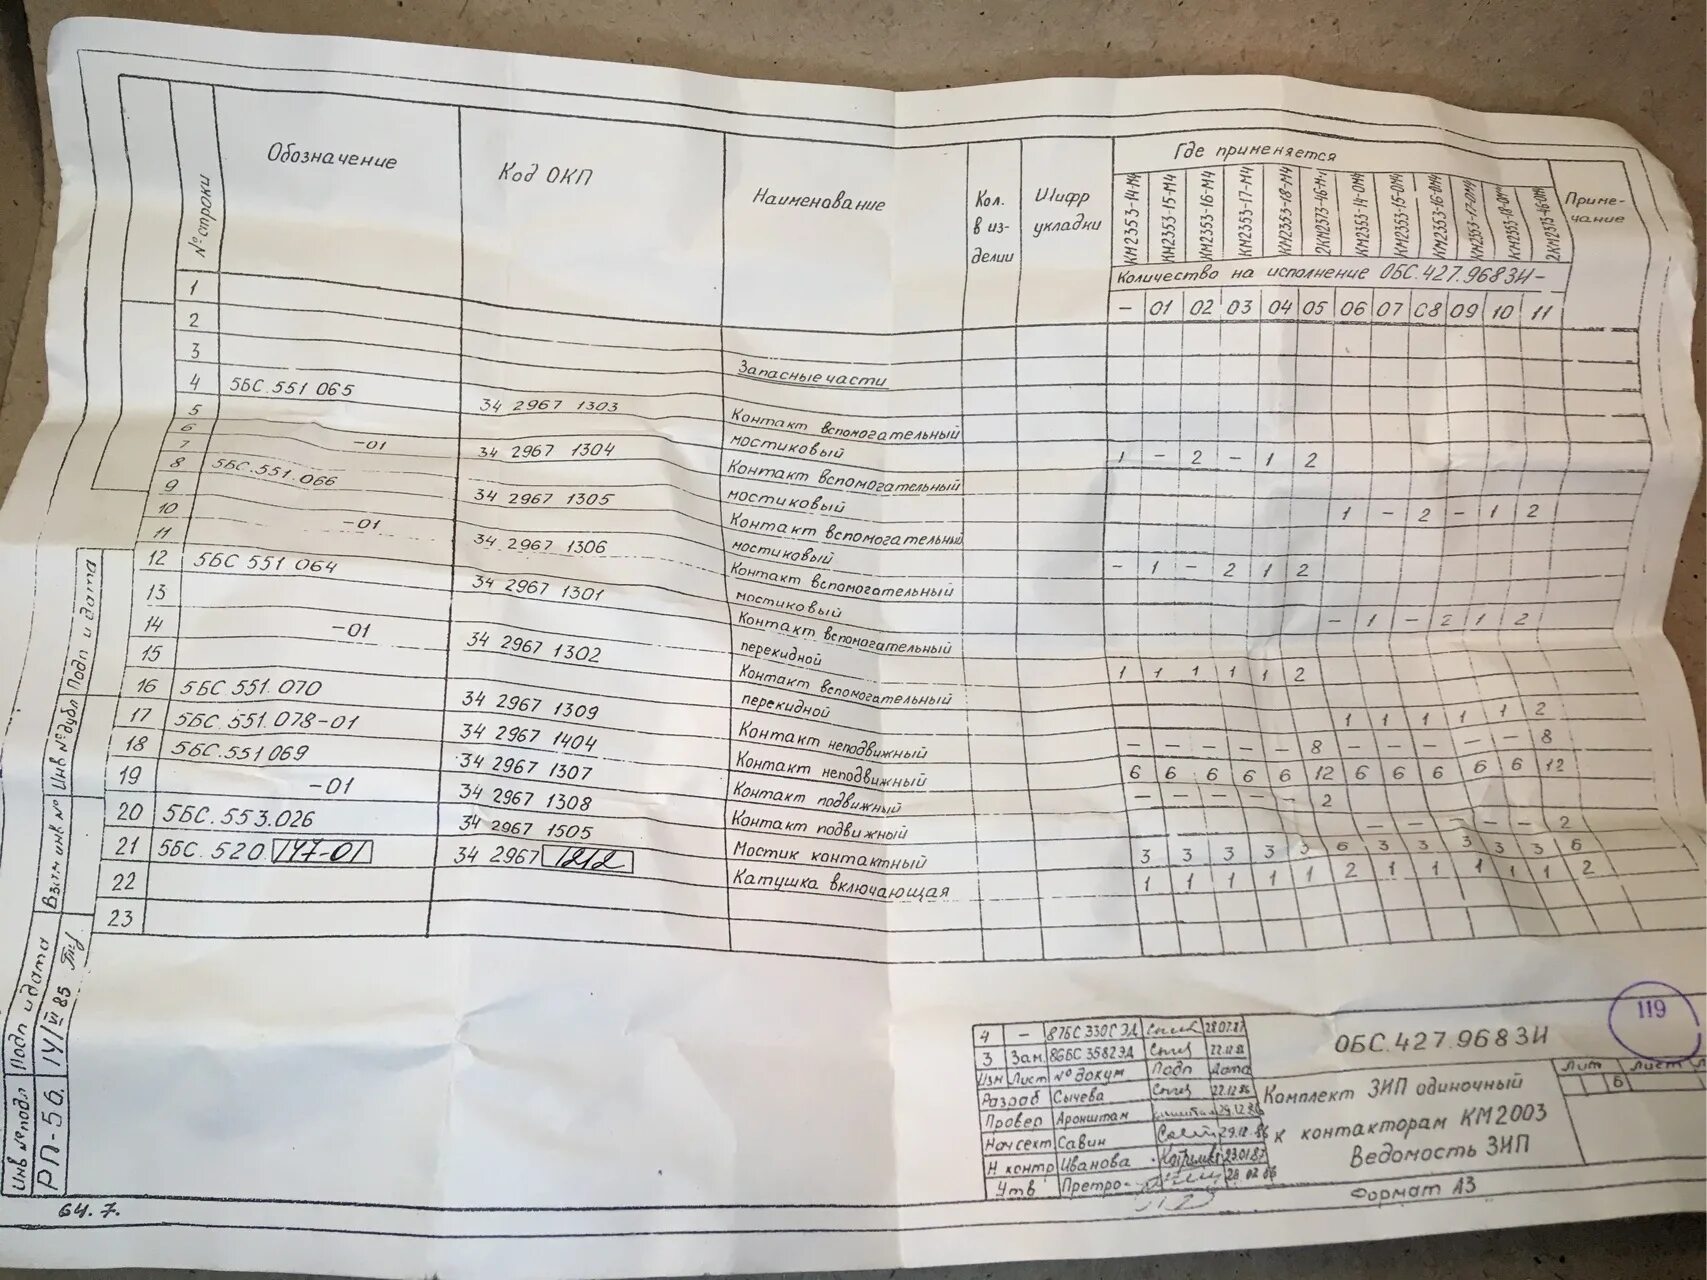 № строки Обозначение Код ОКП Наименование Кол. в изделии Шифр укладки Где применяется Примечание
КМ2353-14-М4 КМ2353-15-М4 КМ2353-16-М4 КМ2353-17-М4 КМ2353-18-М4 КМ2353-14-ОМ4 КМ2353-15-ОМ4 КМ2353-16-ОМ4 КМ2353-17-ОМ4
Количество на исполнение ОБС.427.968ЗИ-
– 01 02 03 04 05 06 07 С8 09 10 11
1
2
3 Запасные части
4 5БС.551 065 34 2967 1303 Контакт вспомогательный
5 мостиковый 1 – 2 – 1 2
6 -01 34 2967 1304 Контакт вспомогательный
7 мостиковый 1 – 2 – 1 2
8 5БС.551.066 34 2967 1305 Контакт вспомогательный
9 мостиковый – 1 – 2 1 2
10 -01 34 2967 1306 Контакт вспомогательный
11 мостиковый – 1 – 2 1 2
12 5БС 551 064 34 2967 1301 Контакт вспомогательный
13 перекидной 1 1 1 1 1 2
14 -01 34 2967 1302 Контакт вспомогательный
15 перекидной 1 1 1 1 1 2
16 5БС 551.070 34 2967 1309 Контакт неподвижный – – – – – 8 – – – – – 8
17 5БС.551.078-01 34 2967 1404 Контакт неподвижный 6 6 6 6 6 12 6 6 6 6 6 12
18 5БС.551 069 34 2967 1307 Контакт подвижный – – – – – 2
19 -01 34 2967 1308 Контакт подвижный – – – – – 2
20 5БС.553.026 34 2967 1505 Мостик контактный 3 3 3 3 3 6 3 3 3 3 3 6
21 5БС.520.147-01 34 2967 1212 Катушка включающая 1 1 1 1 1 2 1 1 1 1 1 2
22
23
Инв № подл Подп и дата Взам инв № Инв № дубл Подп и дата
РП-56. 14/VI 85
64.7.
4 – 87БС 330СЭД 28.07.87
3 Зам. 86БС 3582ЭД 22.12.86
Изм Лист № докум Подп Дата
Разраб Сычева 22.12.86
Провер Аронштам 29.12.86
Нач сект Савин 29.12.86
Н контр Иванова 23.01.87
Утв Претро-
ОБС.427.968ЗИ
119
Комплект ЗИП одиночный
к контакторам КМ2003
Ведомость ЗИП
Лит Лист
Б
Формат А3